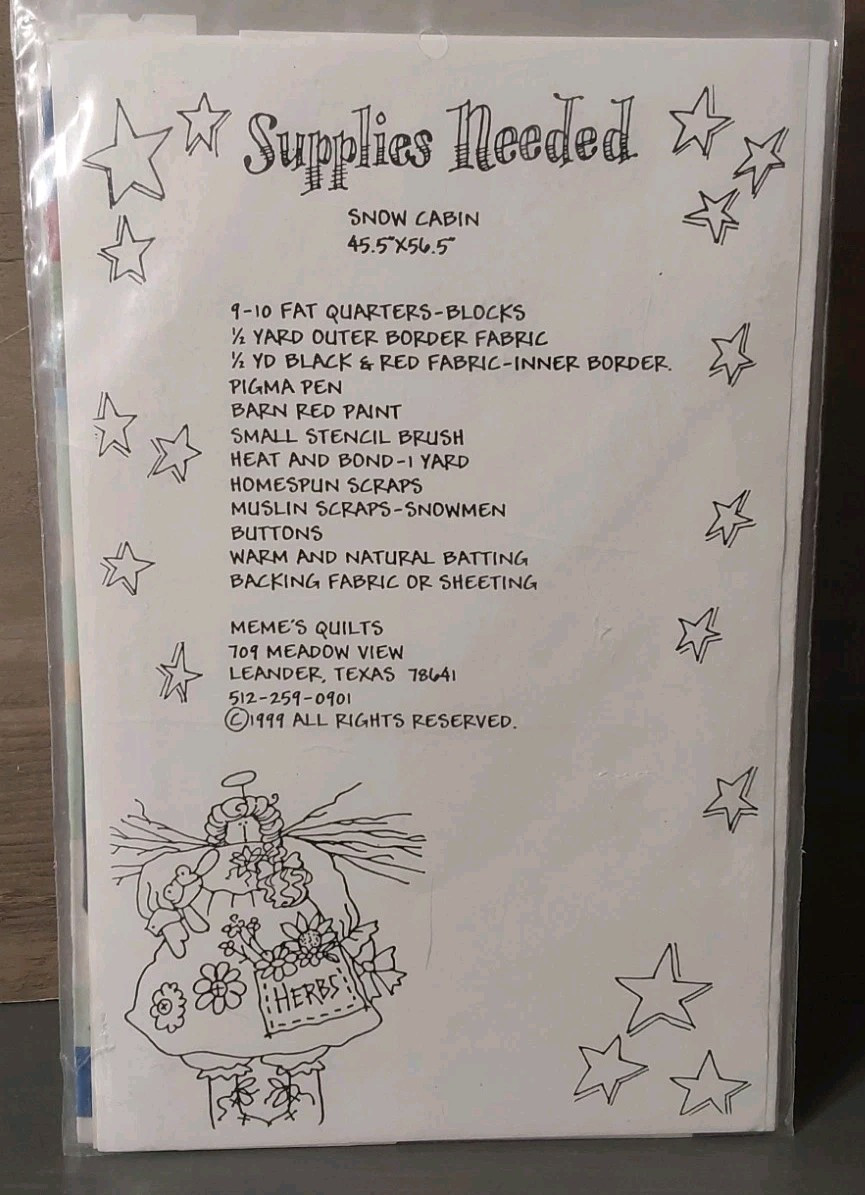 Supplies Needed
SNOW CABIN
45.5"X56.5"
9-10 FAT QUARTERS-BLOCKS
½ YARD OUTER BORDER FABRIC
½ YD BLACK & RED FABRIC-INNER BORDER.
PIGMA PEN
BARN RED PAINT
SMALL STENCIL BRUSH
HEAT AND BOND-1 YARD
HOMESPUN SCRAPS
MUSLIN SCRAPS-SNOWMEN
BUTTONS
WARM AND NATURAL BATTING
BACKING FABRIC OR SHEETING
MEME'S QUILTS
709 MEADOW VIEW
LEANDER, TEXAS 78641
512-259-0901
©1999 ALL RIGHTS RESERVED.
HERBS